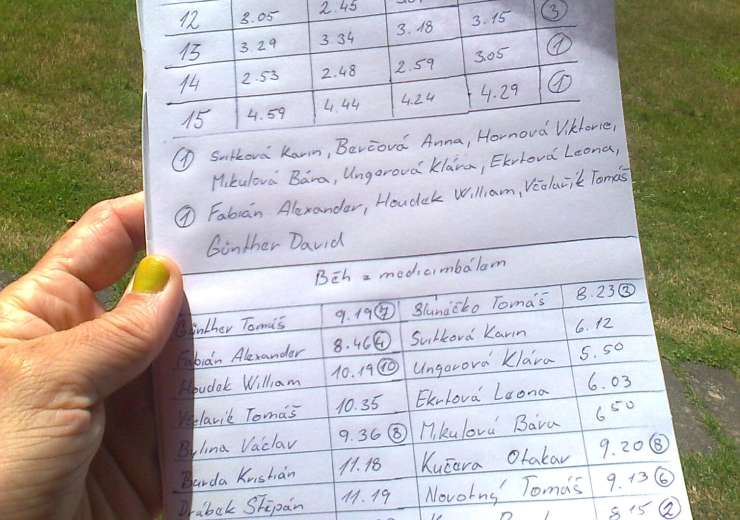 12 3.05 2.45 3.15 ③
13 3.29 3.34 3.18 ①
14 2.53 2.48 2.59 3.05 ①
15 4.59 4.44 4.24 4.29
① Svitková Karin, Berčová Anna, Hornová Viktorie,
Mikulová Bára, Ungarová Klára, Ekrtová Leona,
① Fabián Alexander, Houdek William, Včelařík Tomáš
Günther David
Běh z medicimbálem
Günther Tomáš 9.19 ⑦ Sluníčko Tomáš 8.23 ③
Fabián Alexander 8.46 ④ Svitková Karin 6.12
Houdek William 10.19 ⑩ Ungarová Klára 5.50
Včelařík Tomáš 10.35 Ekrtová Leona 6.03
Bylina Václav 9.36 ⑧ Mikulová Bára 6.50
Burda Kristián 11.18 Kučera Otakar 9.20 ⑧
Drábek Štěpán 11.19 Novotný Tomáš 9.13 ⑥
8.15 ②